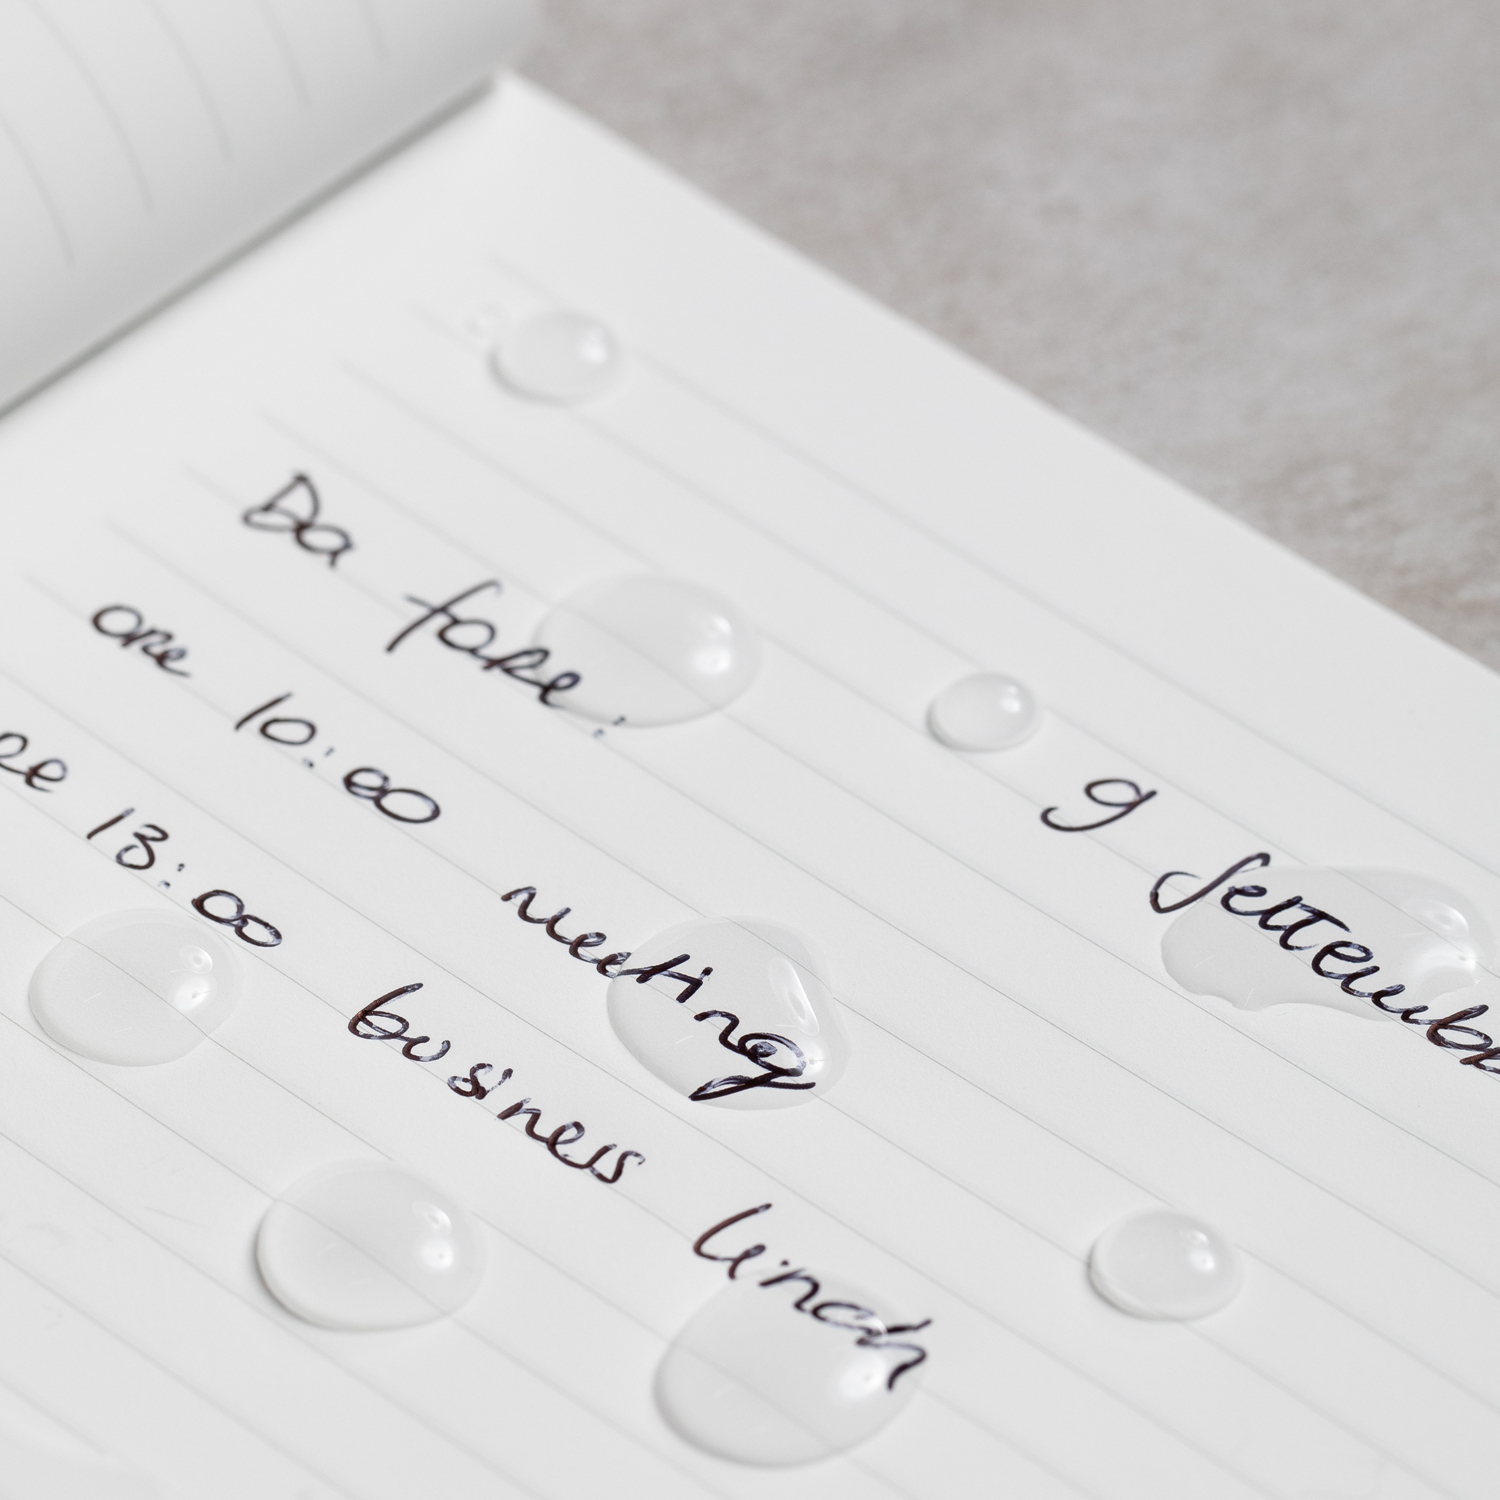 Da fare: 9 settemb
ore 10:00 meeting
re 13:00 business lunch